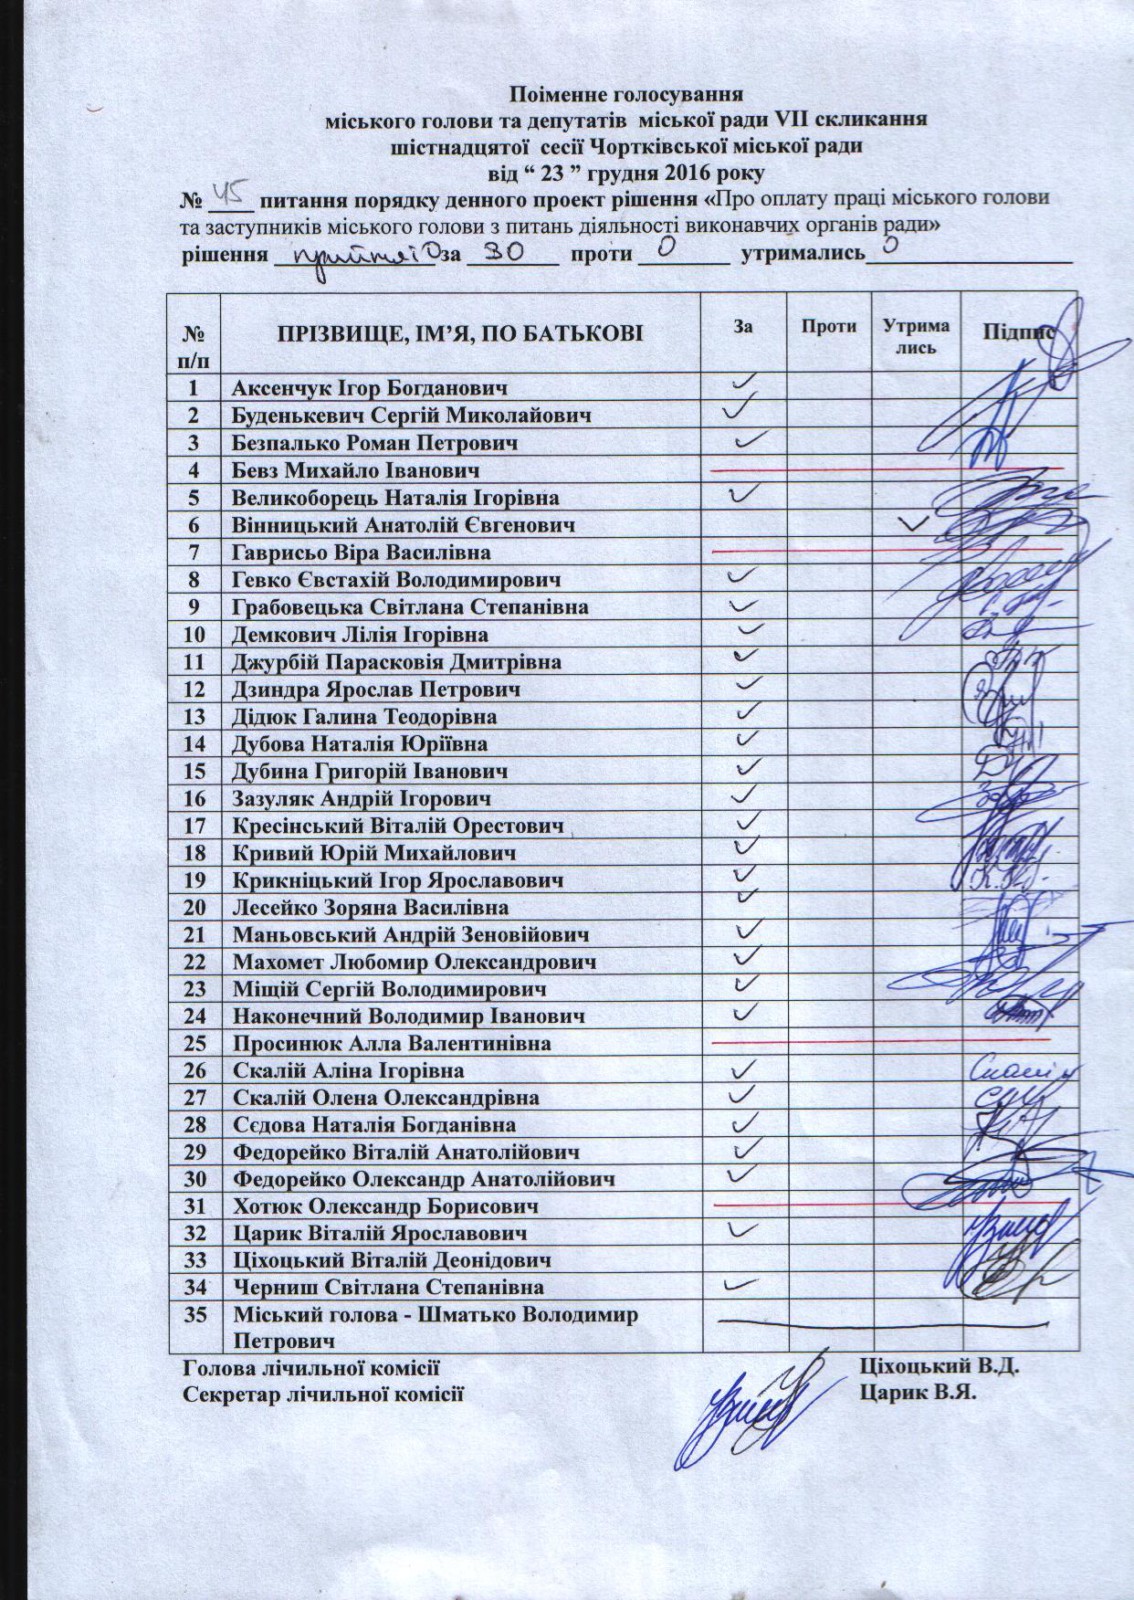 Поіменне голосування
міського голови та депутатів міської ради VII скликання
шістнадцятої сесії Чортківської міської ради
від “ 23 ” грудня 2016 року
№ 45 питання порядку денного проект рішення «Про оплату праці міського голови
та заступників міського голови з питань діяльності виконавчих органів ради»
рішення прийнято за 30 проти 0 утримались 0
№ п/п ПРІЗВИЩЕ, ІМ’Я, ПО БАТЬКОВІ За Проти Утрима лись Підпис
1 Аксенчук Ігор Богданович ✓
2 Буденькевич Сергій Миколайович ✓
3 Безпалько Роман Петрович ✓
4 Бевз Михайло Іванович
5 Великоборець Наталія Ігорівна ✓
6 Вінницький Анатолій Євгенович ✓
7 Гаврисьо Віра Василівна
8 Гевко Євстахій Володимирович ✓
9 Грабовецька Світлана Степанівна ✓
10 Демкович Лілія Ігорівна ✓
11 Джурбій Парасковія Дмитрівна ✓
12 Дзиндра Ярослав Петрович ✓
13 Дідюк Галина Теодорівна ✓
14 Дубова Наталія Юріївна ✓
15 Дубина Григорій Іванович ✓
16 Зазуляк Андрій Ігорович ✓
17 Кресінський Віталій Орестович ✓
18 Кривий Юрій Михайлович ✓
19 Крикніцький Ігор Ярославович ✓
20 Лесейко Зоряна Василівна ✓
21 Маньовський Андрій Зеновійович ✓
22 Махомет Любомир Олександрович ✓
23 Міщій Сергій Володимирович ✓
24 Наконечний Володимир Іванович ✓
25 Просинюк Алла Валентинівна
26 Скалій Аліна Ігорівна ✓
27 Скалій Олена Олександрівна ✓
28 Сєдова Наталія Богданівна ✓
29 Федорейко Віталій Анатолійович ✓
30 Федорейко Олександр Анатолійович ✓
31 Хотюк Олександр Борисович
32 Царик Віталій Ярославович ✓
33 Ціхоцький Віталій Деонідович
34 Черниш Світлана Степанівна ✓
35 Міський голова - Шматько Володимир
Петрович
Голова лічильної комісії Ціхоцький В.Д.
Секретар лічильної комісії Царик В.Я.